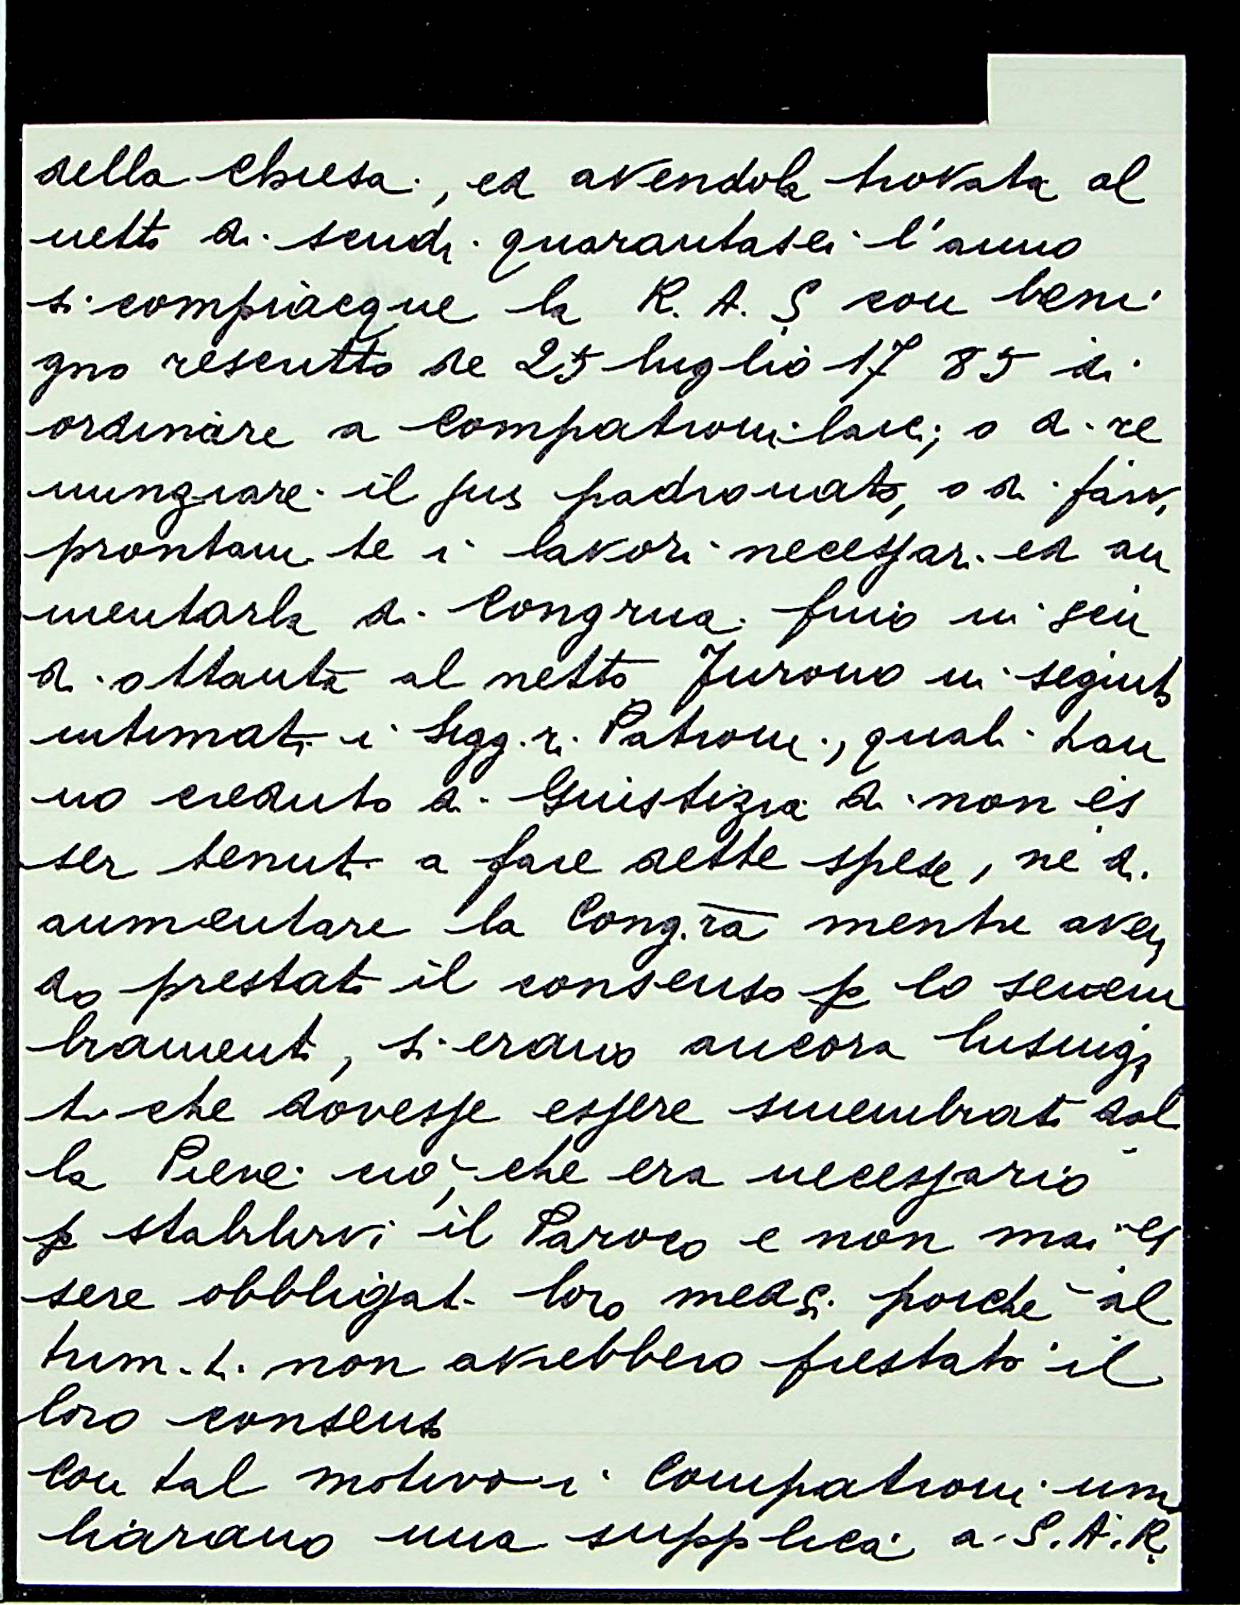 della Chiesa, ed avendola trovata al
netto di scudi quarantasei l'anno
si compiacque la R. A. S con beni
gno rescritto de 25 luglio 17 85 di
ordinare a Compatroni laici; o di re
nunziare il jus padronato, o di fare
prontam. te i lavori necessari ed au
mentarla di Congrua fino in scu
di ottanta al netto Furono in seguito
intimati i Sigg.ri Patroni, quali han
no creduto di Giustizia di non es
ser tenuti a fare dette spese, ne di
aumentare la Cong.ra mentre aven
do prestato il consenso p lo smem
bramento, si erano ancora lusinga
ti che dovesse essere smembrato dal
la Pieve ciò, che era necessario
p stabilirvi il Paroco e non mai es
sere obbligati loro medsi. poichè al
trim.ti non avrebbero prestato il
loro consenso
Con tal motivo i Compatroni um
liarano una supplica a S. A. R.